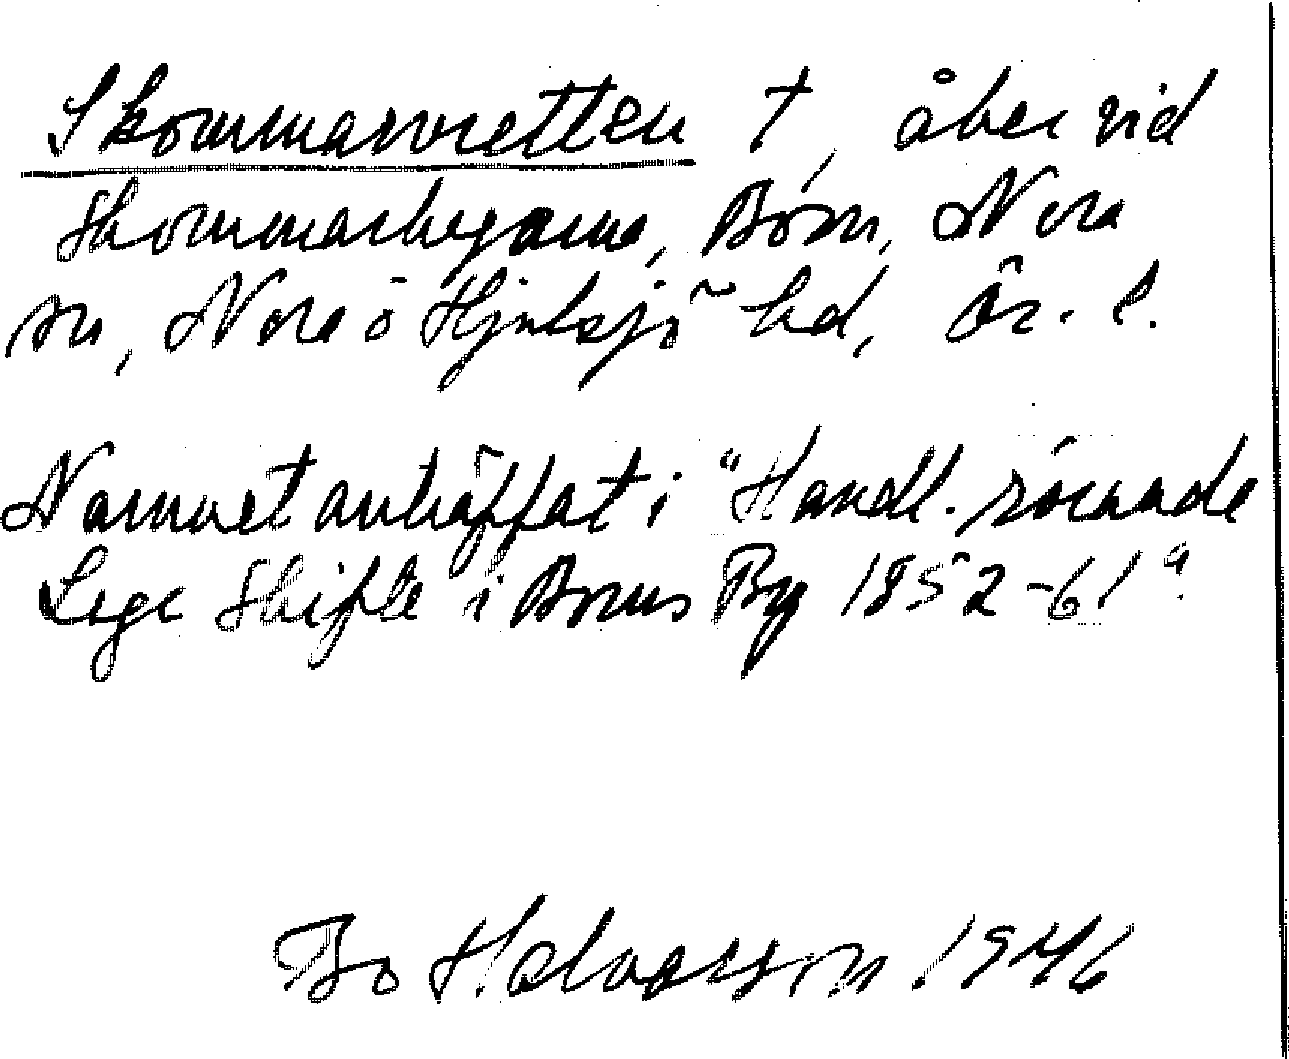 Skommarvretten †, åker vid
Skommarbergarna, Born, Nora
sn, Nora o Hjulsjö hd, Ör. l.
Namnet anträffat i "Handl. rörande
Lage Skifte i Borns By 1852-61".
Bo Halvarsson 1946